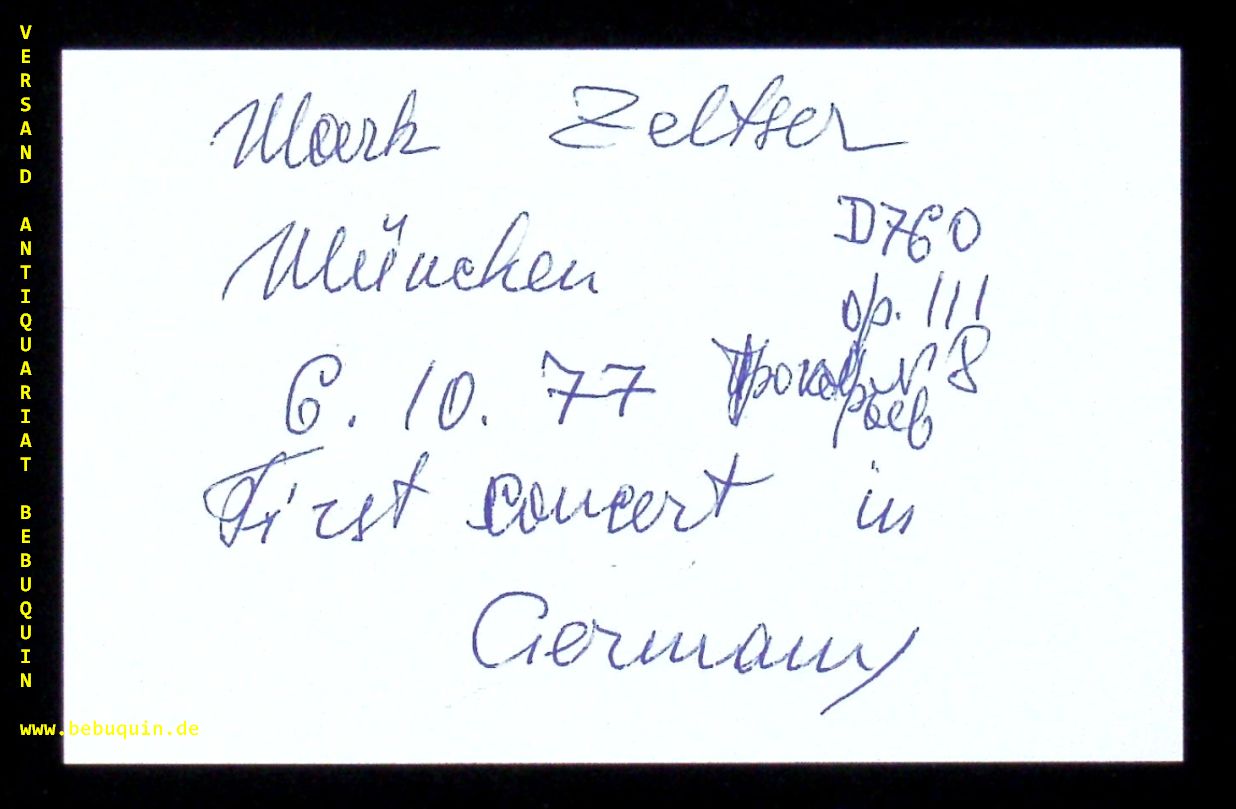 VERSAND ANTIQUARIAT BEBUQUIN
www.bebuquin.de
Mark Zeltser
München
D760
op. 111
6. 10. 77
Прокофьев N 8
First concert in
Germany